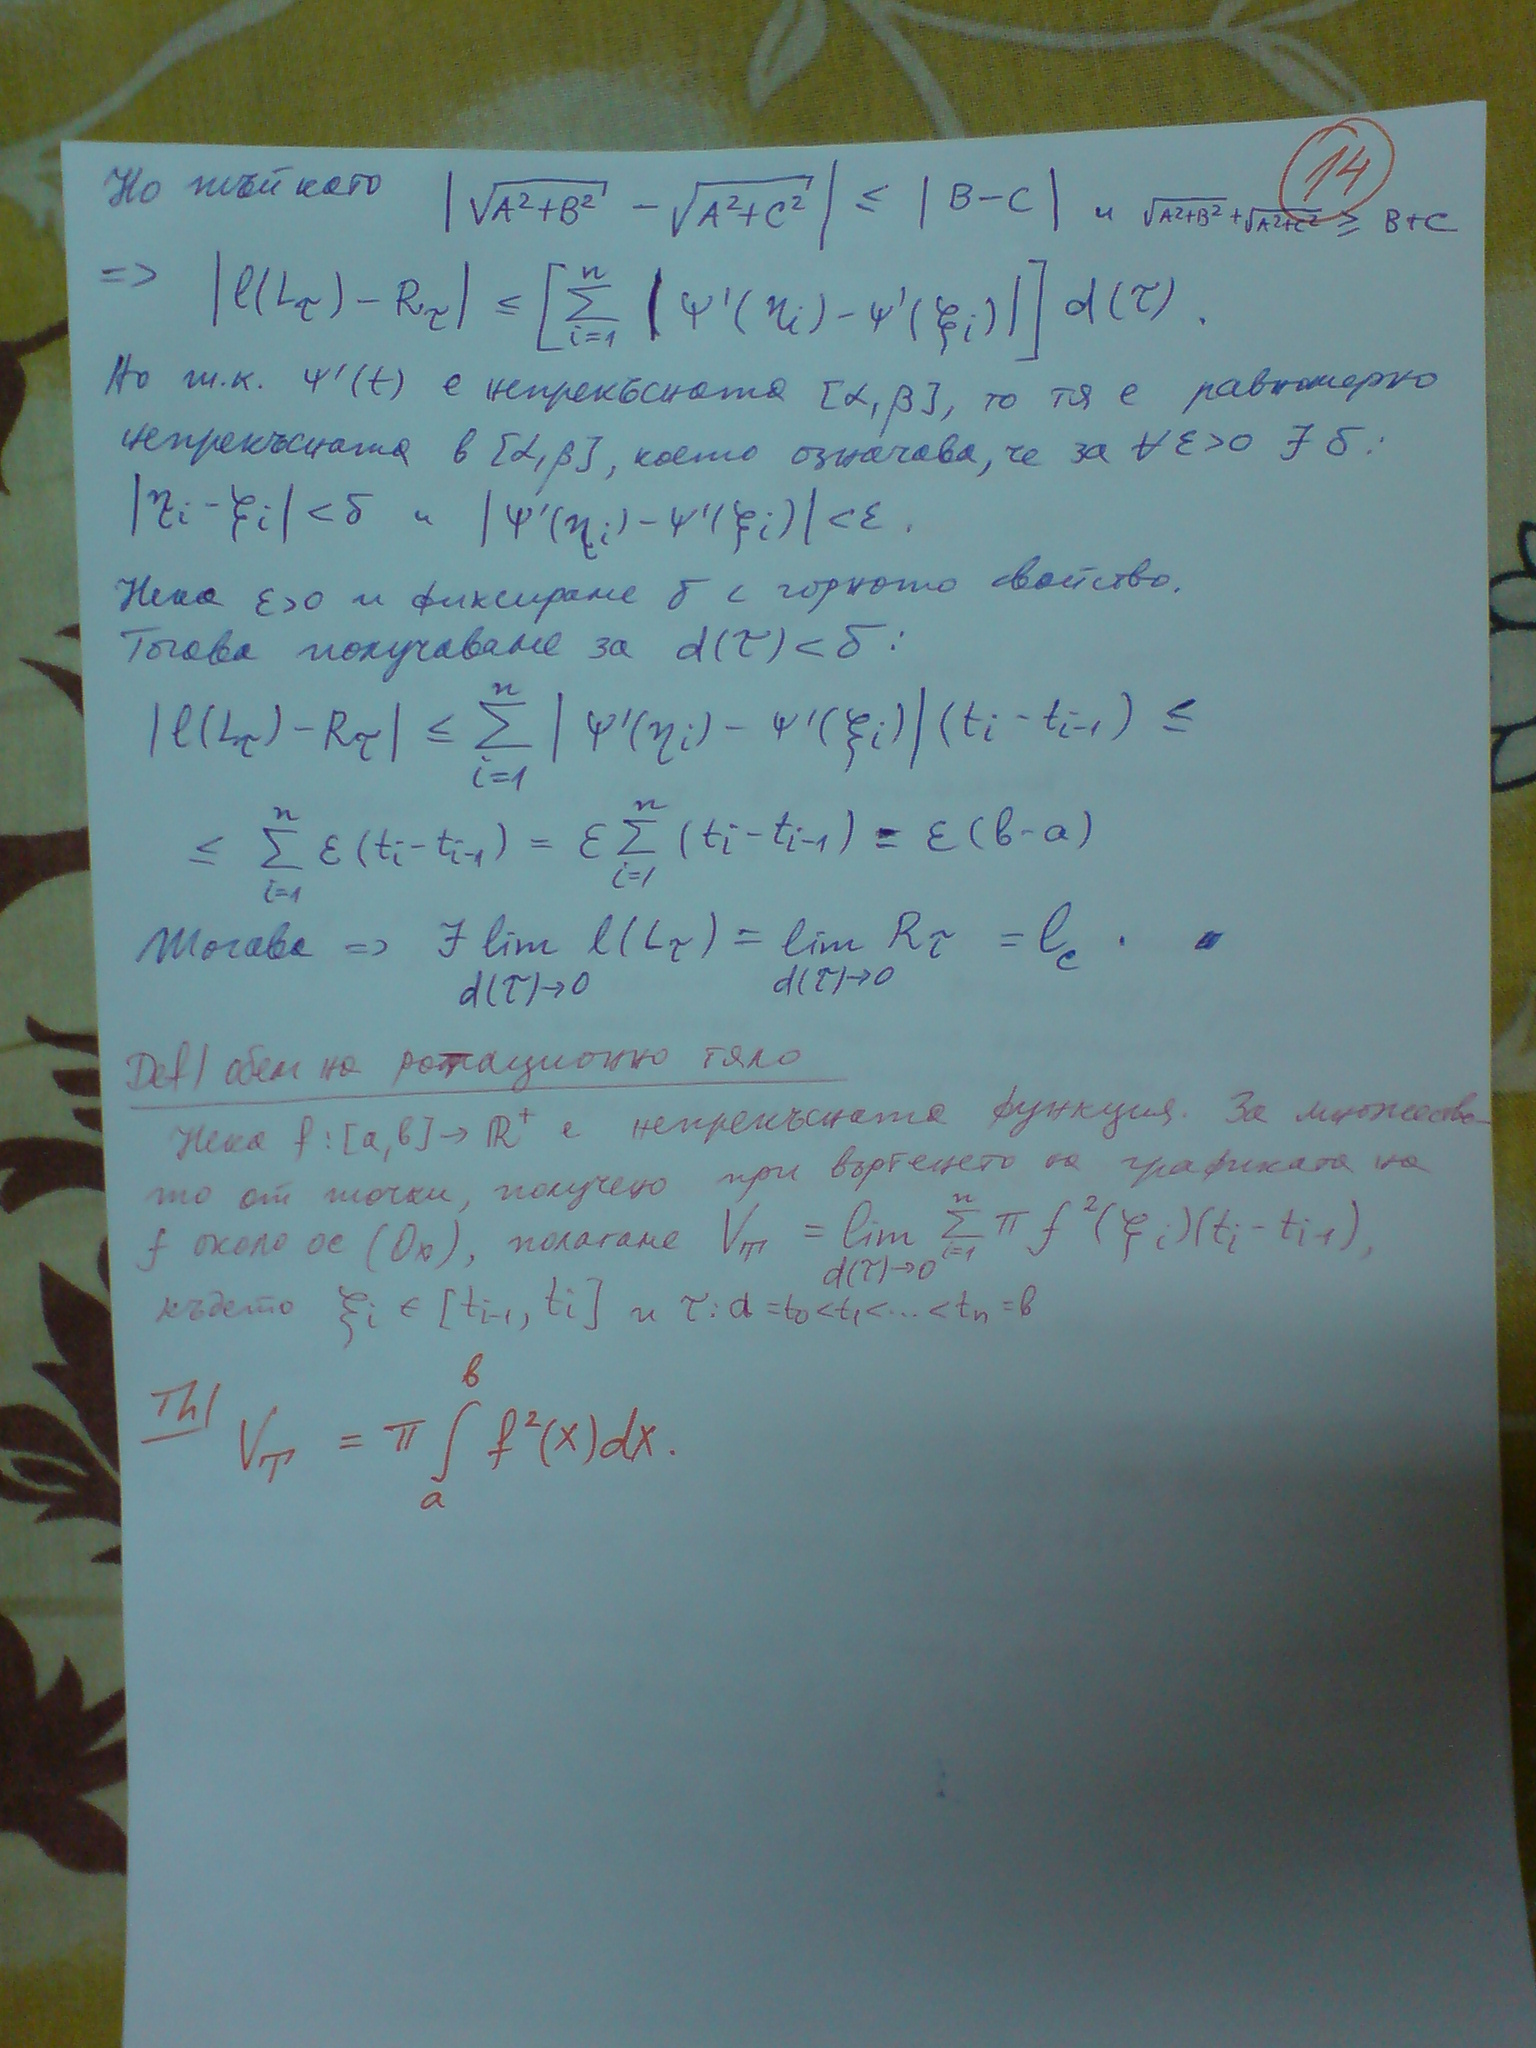 14
Но тъй като |√(A²+B²) - √(A²+C²)| ≤ |B-C| и √(A²+B²)+√(A²+C²) ≥ B+C
=> |l(L_τ) - R_τ| ≤ [∑_{i=1}^{n} |ψ'(η_i) - ψ'(ξ_i)|] d(τ).
Но т.к. ψ'(t) е непрекъсната [α,β], то тя е равномерно
непрекъсната в [α,β], което означава, че за ∀ε>0 ∃ δ:
|η_i - ξ_i| < δ и |ψ'(η_i) - ψ'(ξ_i)| < ε.
Нека ε>0 и фиксираме δ с горното свойство.
Тогава получаваме за d(τ) < δ:
|l(L_τ) - R_τ| ≤ ∑_{i=1}^{n} |ψ'(η_i) - ψ'(ξ_i)| (t_i - t_{i-1}) ≤
≤ ∑_{i=1}^{n} ε(t_i - t_{i-1}) = ε ∑_{i=1}^{n} (t_i - t_{i-1}) = ε(b-a)
Тогава => ∃ lim_{d(τ)→0} l(L_τ) = lim_{d(τ)→0} R_τ = l_c.
Def/ обем на ротационно тяло
Нека f: [a,b] → ℝ⁺ е непрекъсната функция. За множество-
то от точки, получено при въртенето на графиката на
f около ос (Ox), полагаме V_T = lim_{d(τ)→0} ∑_{i=1}^{n} π f²(ξ_i)(t_i - t_{i-1}),
където ξ_i ∈ [t_{i-1}, t_i] и τ: a = t_0 < t_1 < ... < t_n = b
Th/ V_T = π ∫_a^b f²(x)dx.